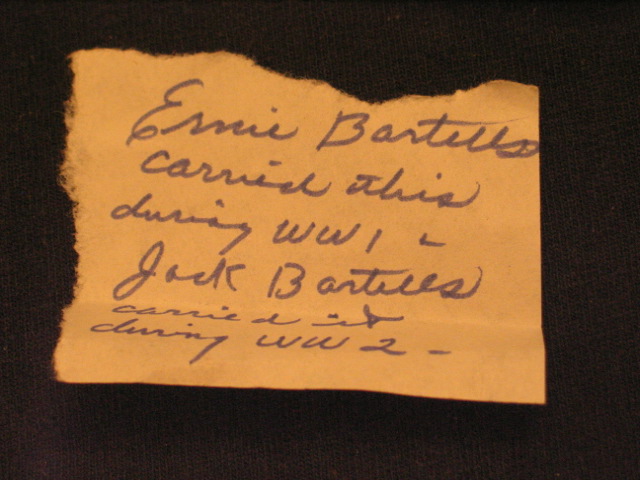 Ernie Bartells
carried this
during WW1 -
Jack Bartells
carried it
during WW2 -